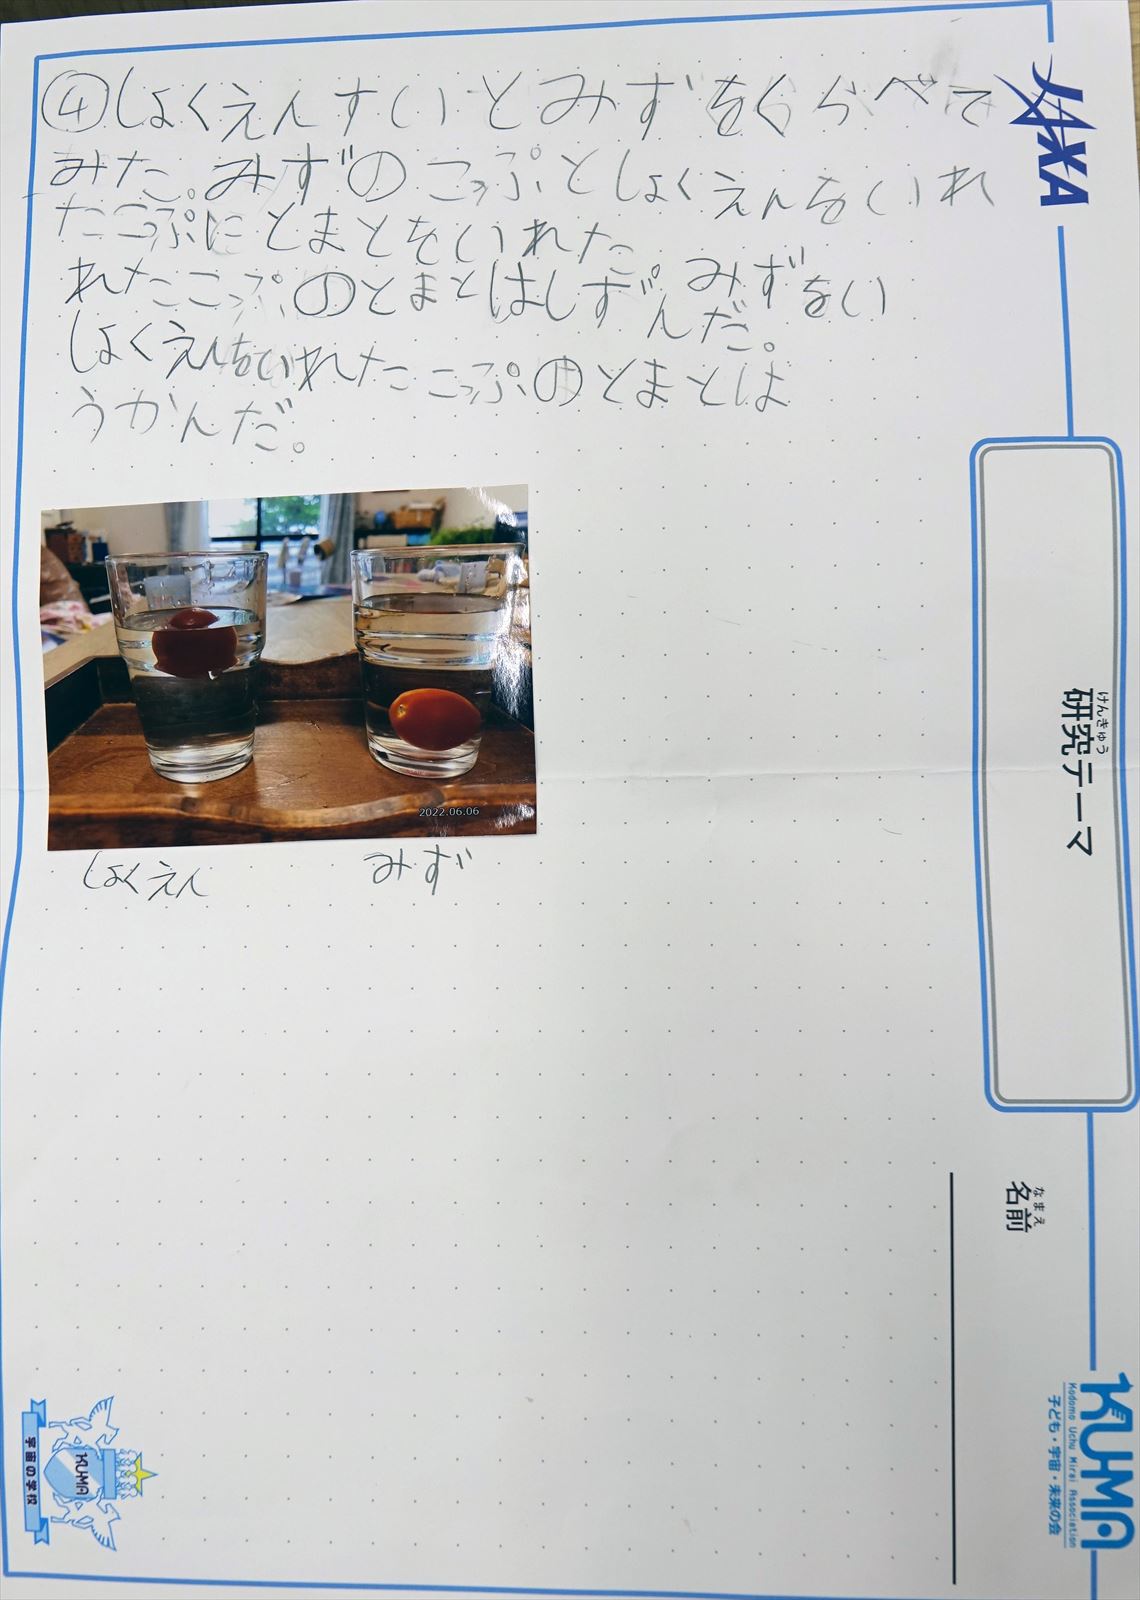 ④しょくえんすいとみずをくらべて
みた。みずのこっぷとしょくえんをいれ
たこっぷにとまとをいれた。みずをい
れたこっぷのとまとはしずんだ。
しょくえんをいれたこっぷのとまとは
うかんだ。
2022.06.06
しょくえん
みず
JAXA
けんきゅう
研究テーマ
なまえ
名前
KUMA
Kodomo Uchu Mirai Association
子ども・宇宙・未来の会
KUMA
宇宙の学校